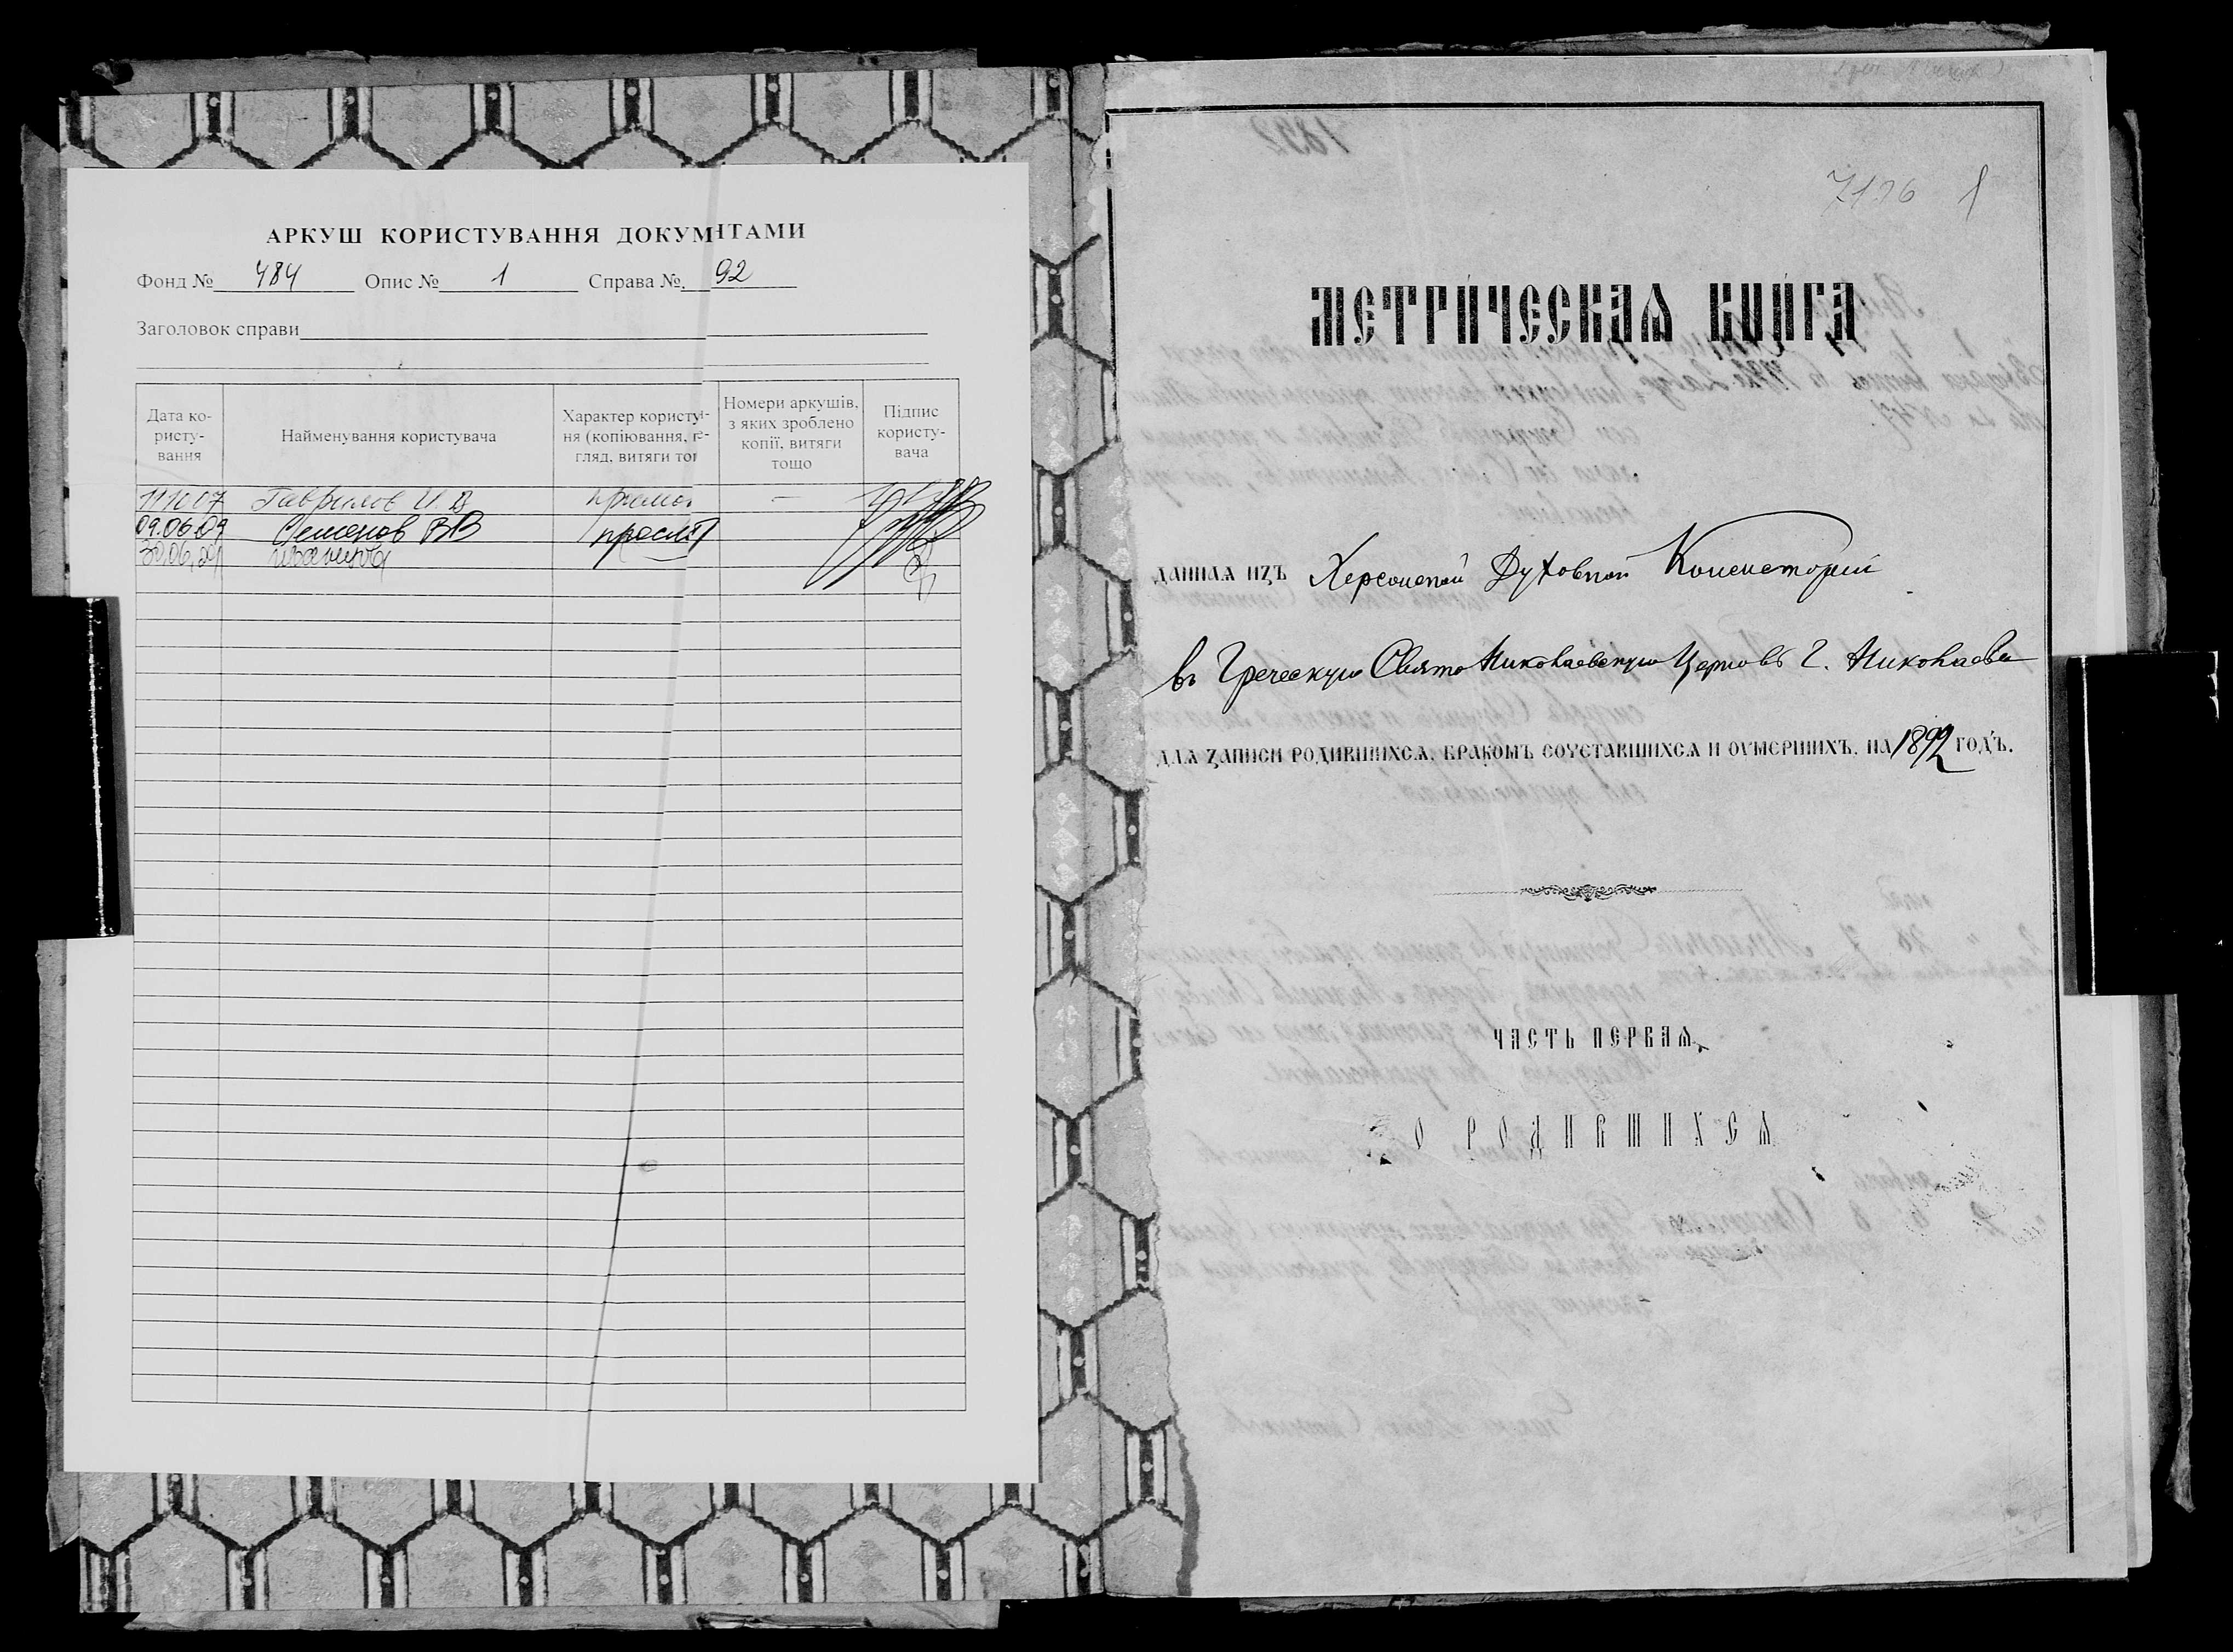 АРКУШ КОРИСТУВАННЯ ДОКУМНТАМИ
Фонд № 484 Опис № 1 Справа № 92
Заголовок справи
Дата ко-
ристу-
вання
Найменування користувача
Характер користу-
ня (копіювання,
гляд, витяги тощ
Номери аркушів,
з яких зроблено
копії, витяги
тощо
Підпис
користу-
вача
11 10 07 Гаврилов И. В. —
09.06.09 Семенов ВВ просмот
30.06.09
7126 1
МЕТРИЧЕСКАЯ КНИГА
ДАННАЯ ИЗЪ Херсонской Духовной Консисторіи
въ Греческую Свято Николаевскую Церковь г. Николаева
ДЛЯ ЗАПИСИ РОДИВШИХСЯ, БРАКОМЪ СОЧЕТАВШИХСЯ И ОУМЕРШИХЪ, НА 1892 ГОДЪ.
ЧАСТЬ ПЕРВАЯ,
О РОДИВШИХСЯ